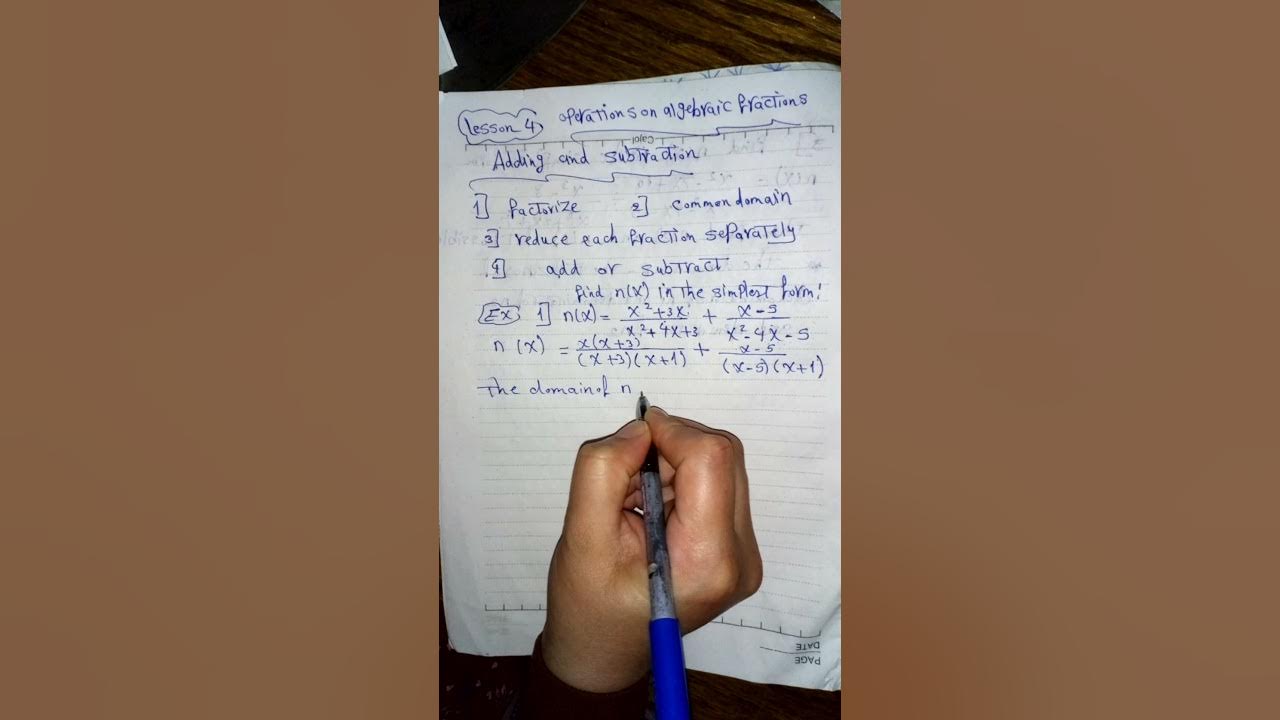 Lesson 4 operations on algebraic fractions
Cajol
Adding and subtraction
1] factorize 2] common domain
3] reduce each fraction separately
4] add or subtract
find n(x) in the simplest form:
Ex 1] n(x) = x²+3x / x²+4x+3 + x-5 / x²-4x-5
n(x) = x(x+3) / (x+3)(x+1) + x-5 / (x-5)(x+1)
The domain of n
DATE
PAGE